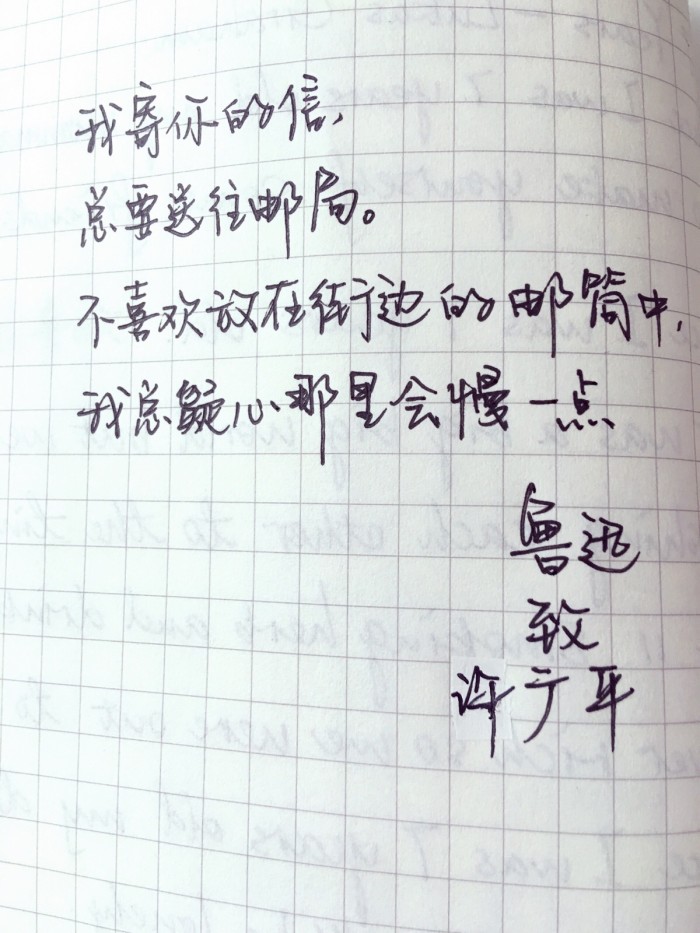 我寄你的信,
总要送往邮局。
不喜欢放在街边的邮筒中,
我总疑心那里会慢一点
鲁迅
致
许广平